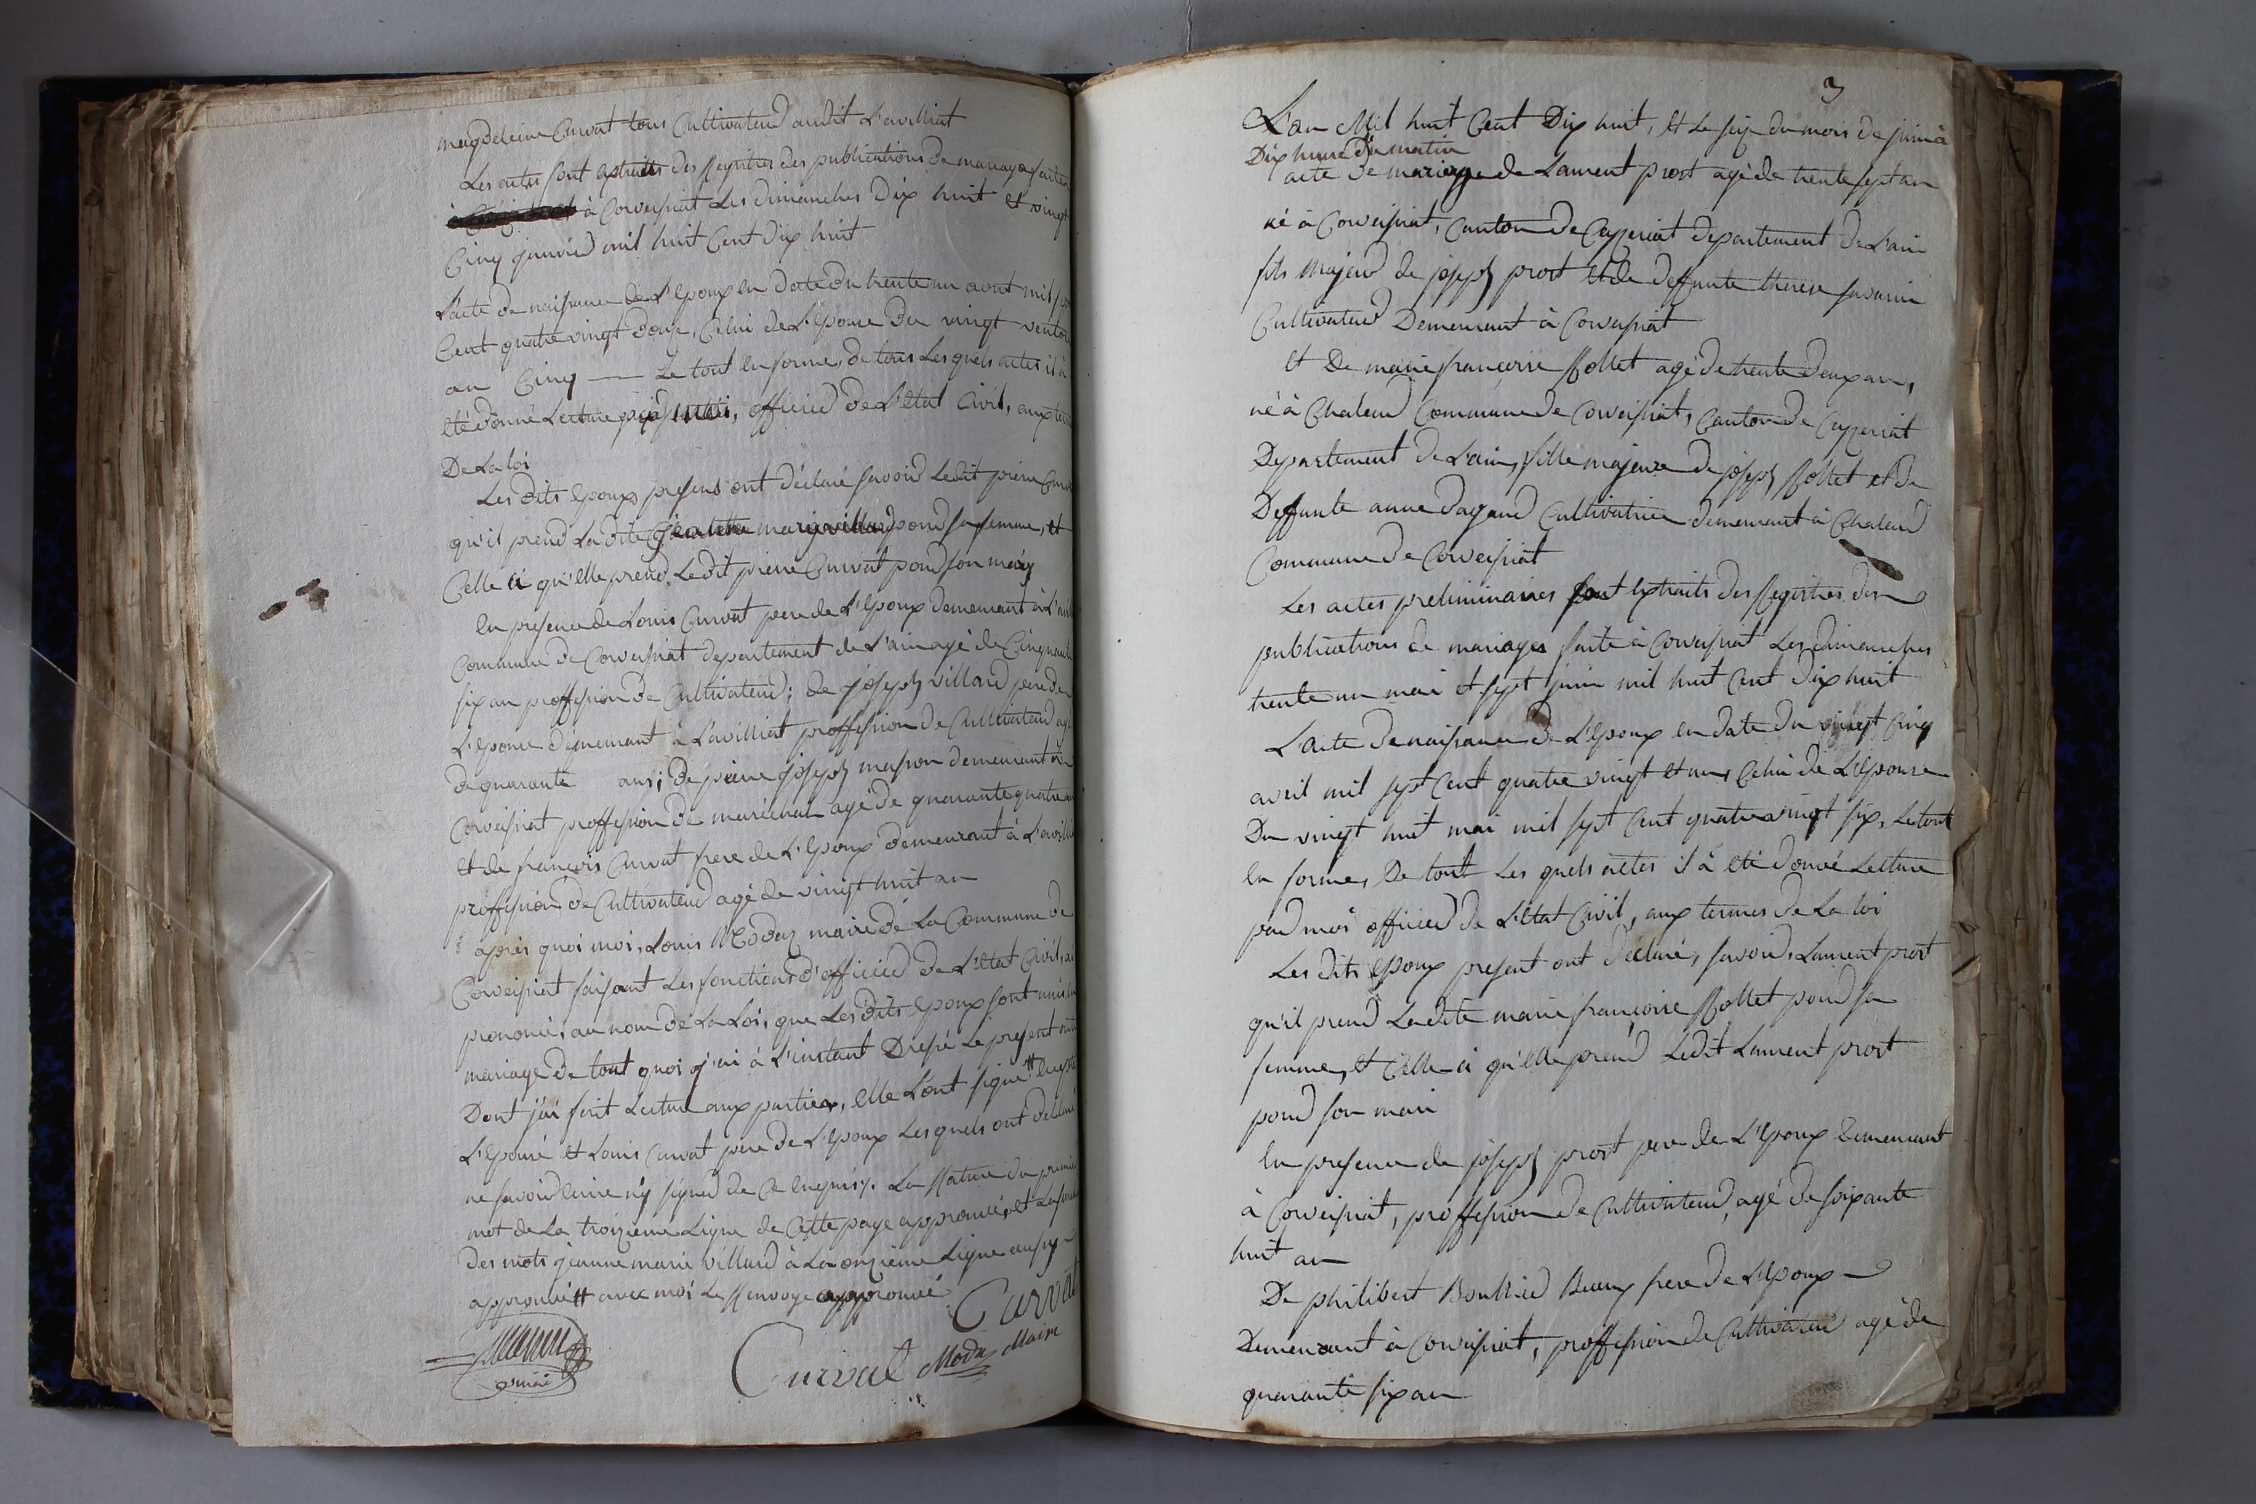 magdeleine Curvat tous Cultivateurs audit L'avilliat
Les actes sont extraits des Registres des publications de mariage faites
à Corveissiat Les dimanches Dix huit et vingt
Cinq janvier mil huit Cent dix huit
L'acte de naissance de L'epoux en date du trente un aout mil sept
Cent quatre vingt douze, Celui de L'epouse du vingt ventose
an Cinq — Le tout en forme, de tous Lesquels actes il à
eté donné Lecture par moi, officier de L'etat Civil, aux termes
De La loi
Les dits epoux presens ont déclaré savoir Ledit pierre Curvat
qu'il prend Ladite jeanne marie villard pour sa femme, et
Celle ci qu'elle prend Ledit pierre Curvat pour son mary
En presence de Louis Curvat pere de L'epoux demeurant à L'avilliat
Commune de Corveissiat departement de L'ain agé de Cinquante
six an proffession de Cultivateur; de joseph villard pere de
L'epouse demeurant à Lavilliat proffession de Cultivateur agé
de quarante ans; de pierre joseph masson demeurant à
Corveissiat proffession de marechal agé de quarante quatre an
et de françois Curvat frere de L'epoux demeurant à L'avilliat
proffession de Cultivateur agé de vingt huit an
après quoi moi, Louis Modas maire de La Commune de
Corveissiat faisant Les fonctions d'officier de L'etat Civil, ai
prononcé, au nom de La Loi, que Les dits epoux sont unis en
mariage de tout quoi j'ai à L'instant Dressé Le present acte
Dont j'ai fait Lecture aux parties, elle L'ont signé # excepté
L'epouse et Louis Curvat pere de L'epoux Lesquels ont declaré
ne savoir ecrire n'y signer de Ce enquis. La Rature du premier
mot de La troizieme Ligne de Cette page approuvée, et La
des mots jeanne marie villard à La onzieme Ligne aussy
approuvé # avec moi Le Renvoye approuvé
Curvat
Curvat Modas Maire
3
L'an Mil huit Cent Dix huit, et Le seize du mois de juin à
Dix heure du matin
acte de mariage de Laurent prost agé de trente sept an
né à Corveissiat, Canton de Ceyzeriat departement de L'ain
fils Majeur de joseph prost et de deffunte therese
Cultivateur Demeurant à Corveissiat
et De marie françoise Rollet agé de trente deux an,
né à Chaleur Commune de Corveissiat, Canton de Ceyzeriat
Departement de L'ain, fille majeure de joseph Rollet et de
Deffunte anne dagaud Cultivatrice demeurant à Chaleur
Commune de Corveissiat
Les actes preliminaires sont extraits des Registres des
publications de mariages faite à Corveissiat Les dimanches
trente un mai et sept juin mil huit Cent dix huit
L'acte de naissance de L'epoux en date du vingt Cinq
avril mil sept Cent quatre vingt et un, Celui de L'epouse
Du vingt huit mai mil sept Cent quatre vingt six, Le tout
en forme, De tout Les quels actes il à eté donné Lecture
par moi officier de L'etat Civil, aux termes de La loi
Les dits epoux present ont déclaré, savoir, Laurent prost
qu'il prend Ladite marie françoise Rollet pour sa
femme, et Celle-ci qu'elle prend Ledit Laurent prost
pour son mari
En presence de joseph prost pere de L'epoux demeurant
à Corveissiat, proffession de Cultivateur, agé de soixante
huit an
De philibert Boullier Beaux frere de L'epoux
Demeurant à Corveissiat, proffession de Cultivateur agé de
quarante six an